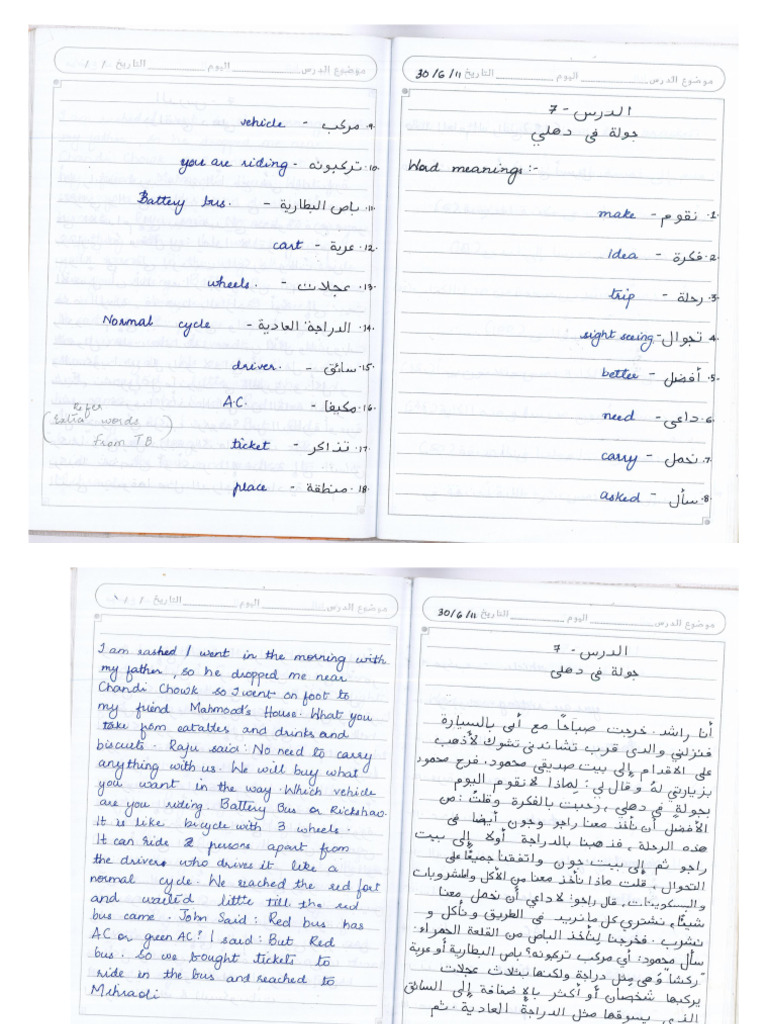 موضوع الدرس اليوم التاريخ 30/6/11
الدرس - 7
جولة في دهلي
Word meanings :-
1. نقوم - make
2. فكرة - Idea
3. رحلة - trip
4. تجوال - sight seeing
5. أفضل - better
6. داعى - need
7. نحمل - carry
8. سأل - asked
موضوع الدرس اليوم التاريخ / /
9. مركب - vehicle
10. تركبونه - you are riding
11. باص البطارية - Battery bus.
12. عربة - cart
13. عجلات - wheels.
14. الدراجة العادية - Normal cycle
15. سائق - driver.
16. مكيفا - A.C.
17. تذاكر - ticket
18. منطقة - place
(Refer
Extra words
from TB)
موضوع الدرس اليوم التاريخ 30/6/11
الدرس - 7
جولة في دهلى
أنا راشد. خرجت صباحًا مع أبى بالسيارة
فنزلني والدى قرب تشاندنى تشوك لأذهب
على الاقدام إلى بيت صديقى محمود. فرح محمود
بزيارتي له وقال لي: لماذا لانقوم اليوم
بجولة في دهلي، رحبت بالفكرة وقلت: من
الأفضل أن نأخذ معنا راجو وجون أيضا فى
هذه الرحلة، فذهبنا بالدراجة أولا إلى بيت
راجو ثم إلى بيت جون واتفقنا جميعًا على
التجوال، قلت ماذا نأخذ معنا من الأكل والمشروبات
والبسكويتات، قال راجو: لاداعي أن نحمل معنا
شيئًا، نشترى كل ما نريد فى الطريق ونأكل و
نشرب. فخرجنا لنأخذ الباص من القلعة الحمراء.
سأل محمود: أي مركب تركبونه؟ باص البطارية أو عربة
"ركشا" وهى مثل دراجة ولكنها بثلاث عجلات
يركبها شخصان أو أكثر بالإضافة إلى السائق
الذى يسوقها مثل الدراجة العادية. ثم
موضوع الدرس اليوم التاريخ / /
I am rashed I went in the morning with
my father, so he dropped me near
Chandi Chowk so I went on foot to
my friend Mahmood's House. What you
take from eatables and drinks and
biscuits. Raju said: No need to carry
anything with us. We will buy what
you want in the way. Which vehicle
are you riding. Battery Bus or Rickshaw.
It is like bicycle with 3 wheels.
It can ride 2 persons apart from
the drivers who drives it like a
normal cycle. We reached the red fort
and waited little till the red
bus came. John Said: Red bus has
AC or green AC? I said: But Red
bus. So we bought tickets to
ride in the bus and reached to
Mehradi